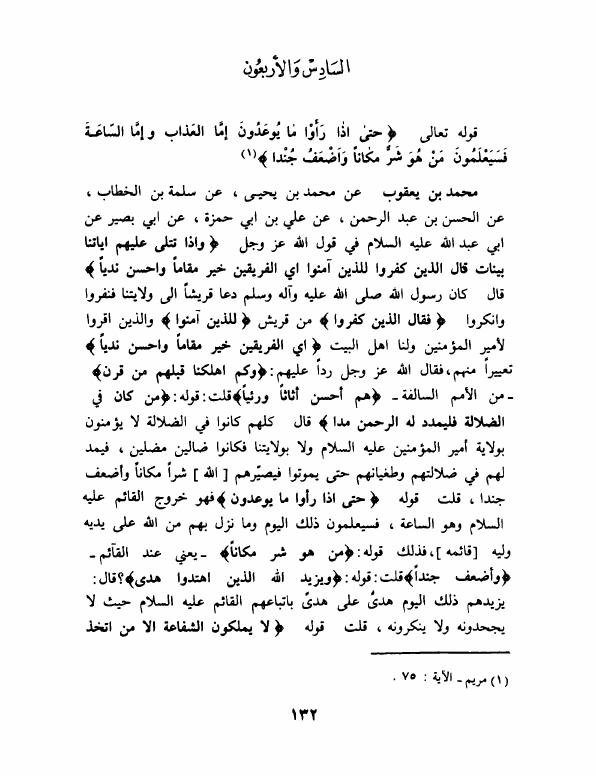 السَادِسْ وَالأربعُون
قوله تعالى ﴿ حتىٰ اذٰا رَأَوْا مٰا يُوعَدُونَ إمَّا العَذاب وإمَّا السّاعَةَ
فَسَيَعْلَمُونَ مَنْ هُوَ شَرٌّ مكٰاناً وَاَضْعَفُ جُنْدا ﴾(١)
محمد بن يعقوب عن محمد بن يحيى ، عن سلمة بن الخطاب ،
عن الحسن بن عبد الرحمن ، عن علي بن ابي حمزة ، عن ابي بصير عن
ابي عبد الله عليه السلام في قول الله عز وجل ﴿ واذا تتلى عليهم اياتنا
بينات قال الذين كفروا للذين آمنوا اي الفريقين خير مقاماً واحسن ندياً ﴾
قال كان رسول الله صلى الله عليه وآله وسلم دعا قريشاً الى ولايتنا فنفروا
وانكروا ﴿ فقال الذين كفروا ﴾ من قريش ﴿ للذين آمنوا ﴾ والذين اقروا
لأمير المؤمنين ولنا اهل البيت ﴿ اي الفريقين خير مقاماً واحسن ندياً ﴾
تعييراً منهم،فقال الله عز وجل رداً عليهم:﴿وكم اهلكنا قبلهم من قرن﴾
ـ من الأمم السالفة ـ ﴿هم أحسن أثاثاً ورئياً﴾قلت:قوله:﴿من كان في
الضلالة فليمدد له الرحمن مدا ﴾ قال كلهم كانوا في الضلالة لا يؤمنون
بولاية أمير المؤمنين عليه السلام ولا بولايتنا فكانوا ضالين مضلين ، فيمد
لهم في ضلالتهم وطغيانهم حتى يموتوا فيصيّرهم [ الله ] شراً مكاناً وأضعف
جندا ، قلت قوله ﴿ حتى اذا رأوا ما يوعدون ﴾فهو خروج القائم عليه
السلام وهو الساعة ، فسيعلمون ذلك اليوم وما نزل بهم من الله على يديه
وليه [قائمه]،فذلك قوله:﴿من هو شر مكاناً﴾ ـ يعني عند القآئم ـ
﴿وأضعف جنداً﴾قلت:قوله:﴿ويزيد الله الذين اهتدوا هدى﴾؟قال:
يزيدهم ذلك اليوم هدىً على هدىً باتباعهم القائم عليه السلام حيث لا
يجحدونه ولا ينكرونه ، قلت قوله ﴿ لا يملكون الشفاعة الا من اتخذ
(١) مريم ـ الآية : ٧٥ .
١٣٢